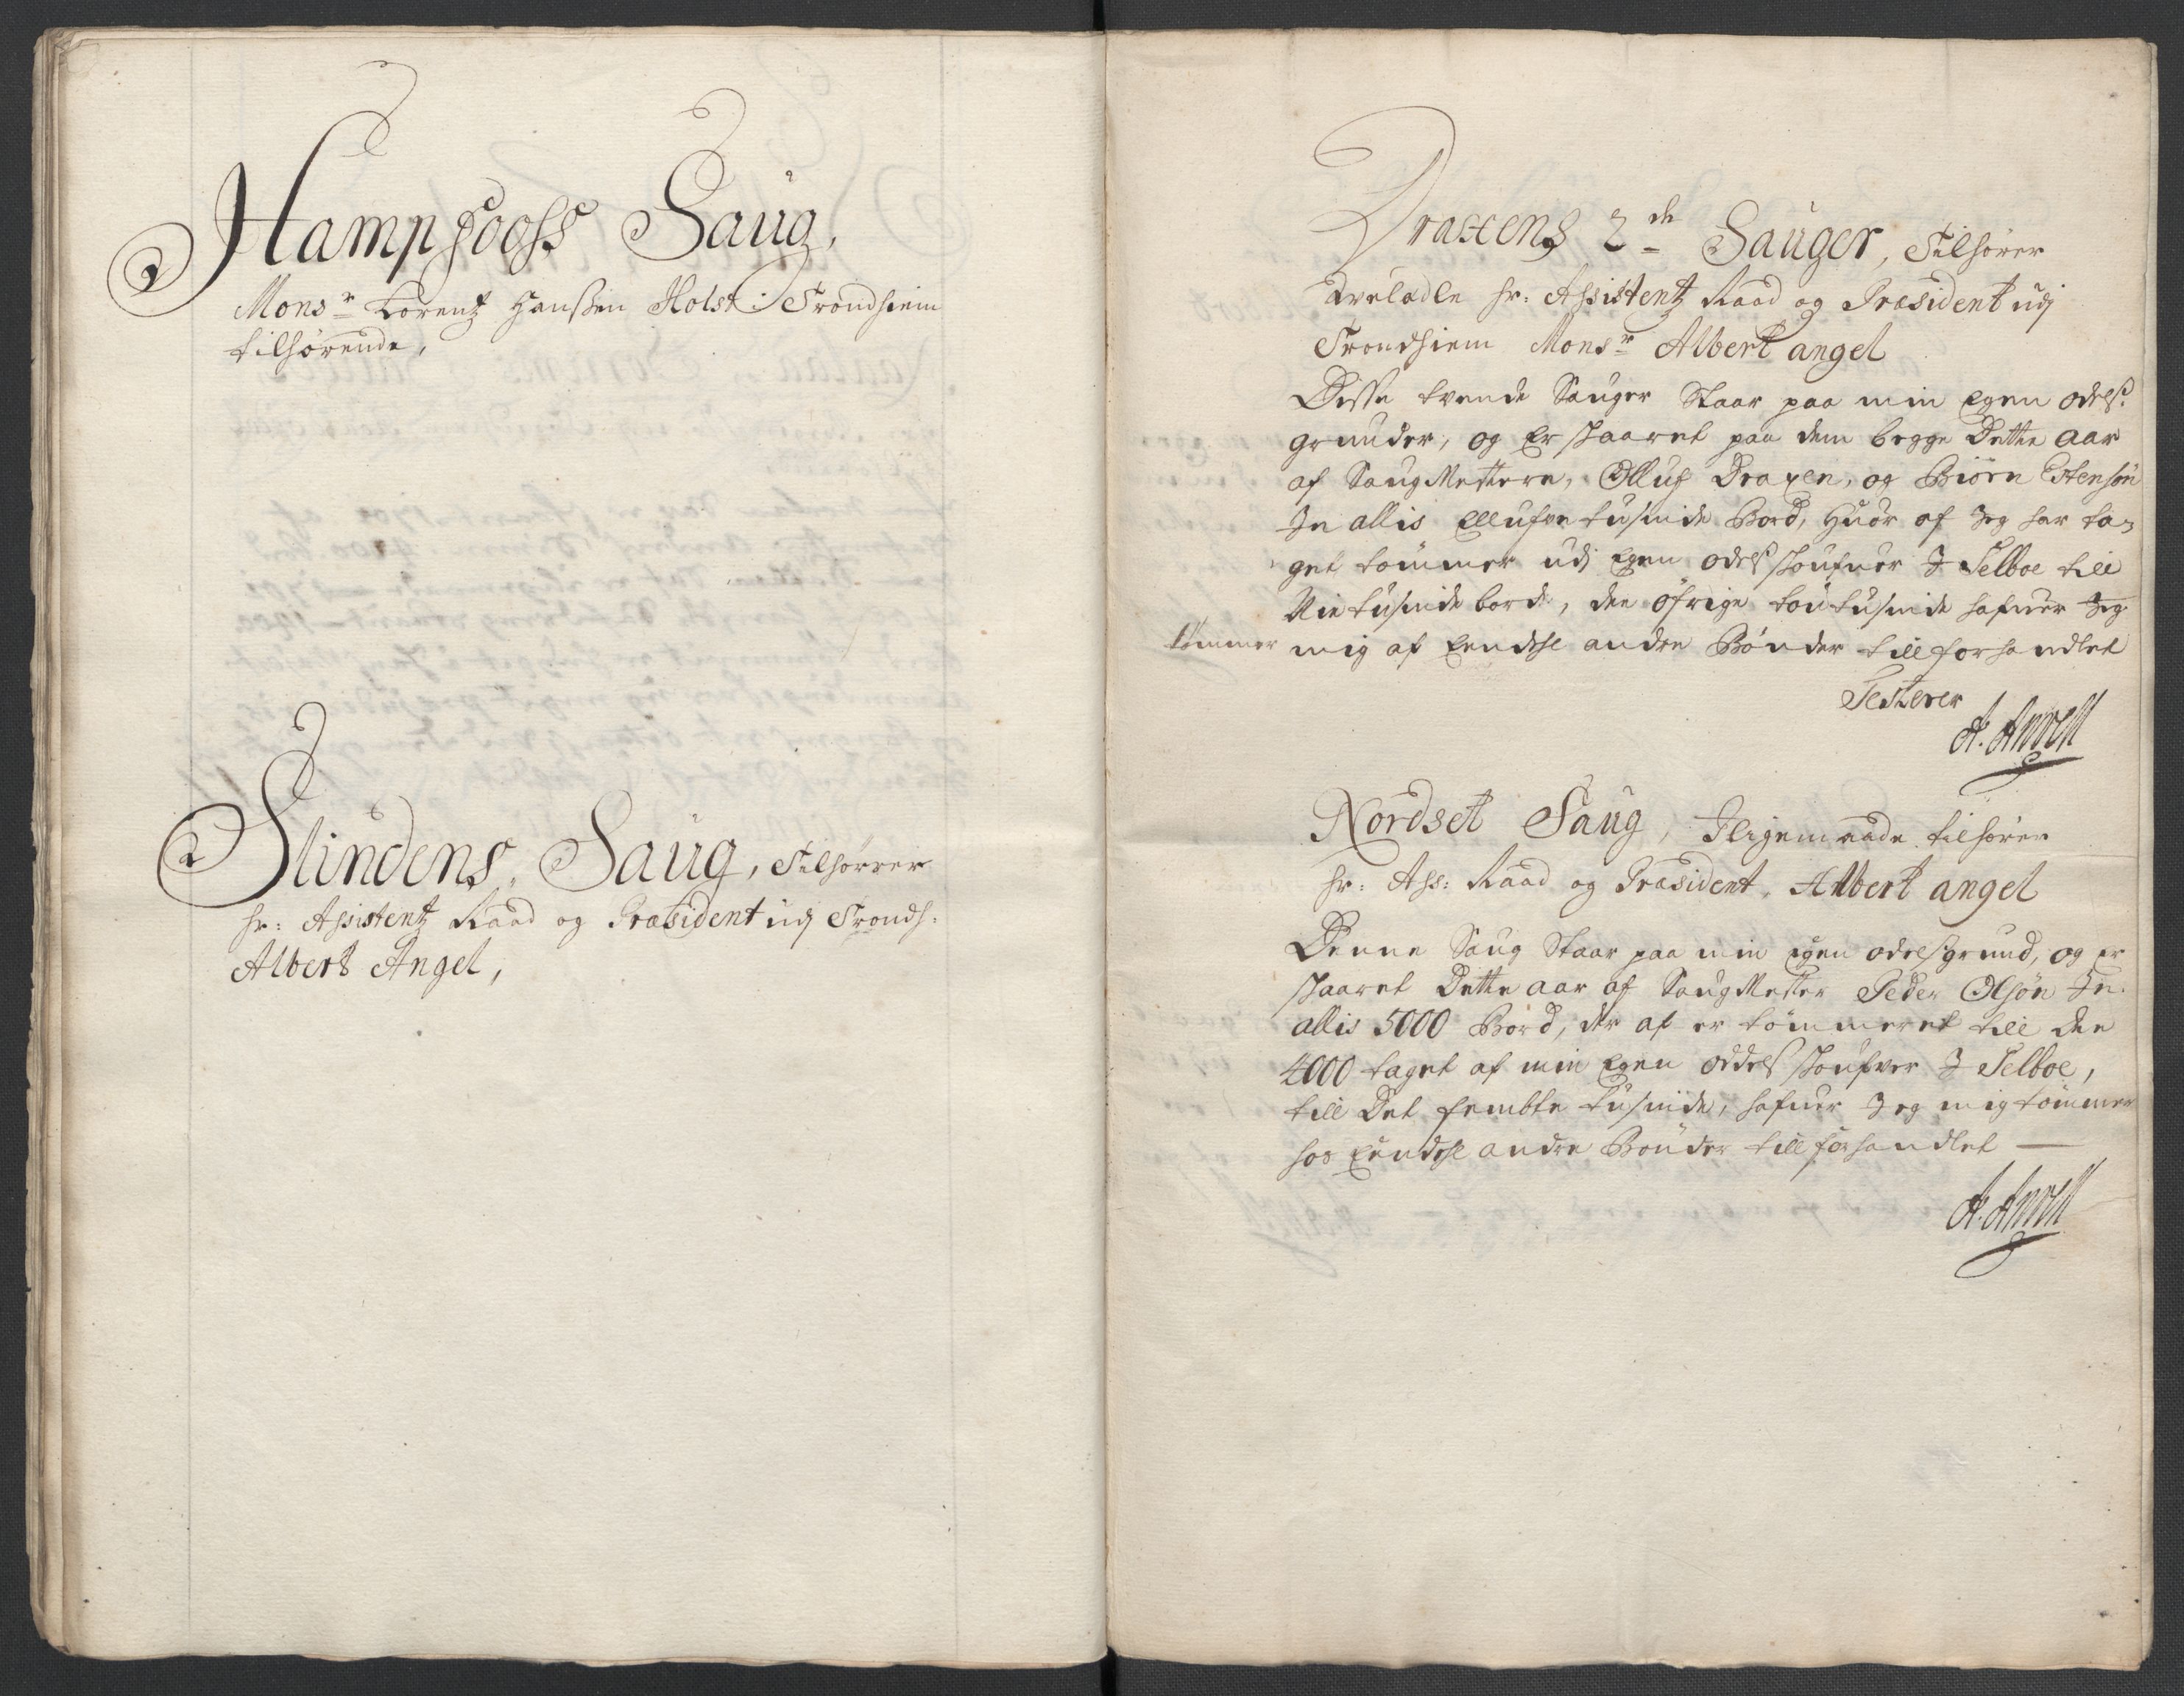 Hampfooss Saug,
Monsr Lorentz Hanssen Holst i Trondhiem
tilhørende,
Slindens Saug, Tilhørrer
Hr: Assistentz Raad og Præsident udj Trondh:
Albert Angel,
Draxens 2de Sauger, Tilhører
Velædle Hr: Assistentz Raad og Præsident udj
Trondhiem Monsr Albert angel
Disse tvende Sauger Staar paa min Egen odels
grunder, og Er skaaret paa dem begge Dette aar
af SaugMestere, Olluf Draxen, og Biørn Estensøn
In allis Ellufve tusinde Bord, Huor af Jeg har ta-
get tømmer udj Egen odels skoufuer I Selboe till
Nie tusinde bord, den øfrige tou tusinde hafuer Jeg
tømmer mig af Eendehl andre Bønder till forhandlet
Testerer
A. Angell
Nordset Saug, Iligemaade tilhører
Hr: Ass: Raad og Præsident, Albert angel
Denne Saug Staar paa min egen odelsgrund, og er
skaaret Dette aar af SaugMester Peder Olsøn In
allis 5000 Bord, der af er tømmeret till den
4000 taget af min Egen oddels skoufver I Selboe,
till Det fembte tusinde, hafuer Jeg mig tømmer
hos Eendehl andre Bønder till forhandlet —
A. Angell